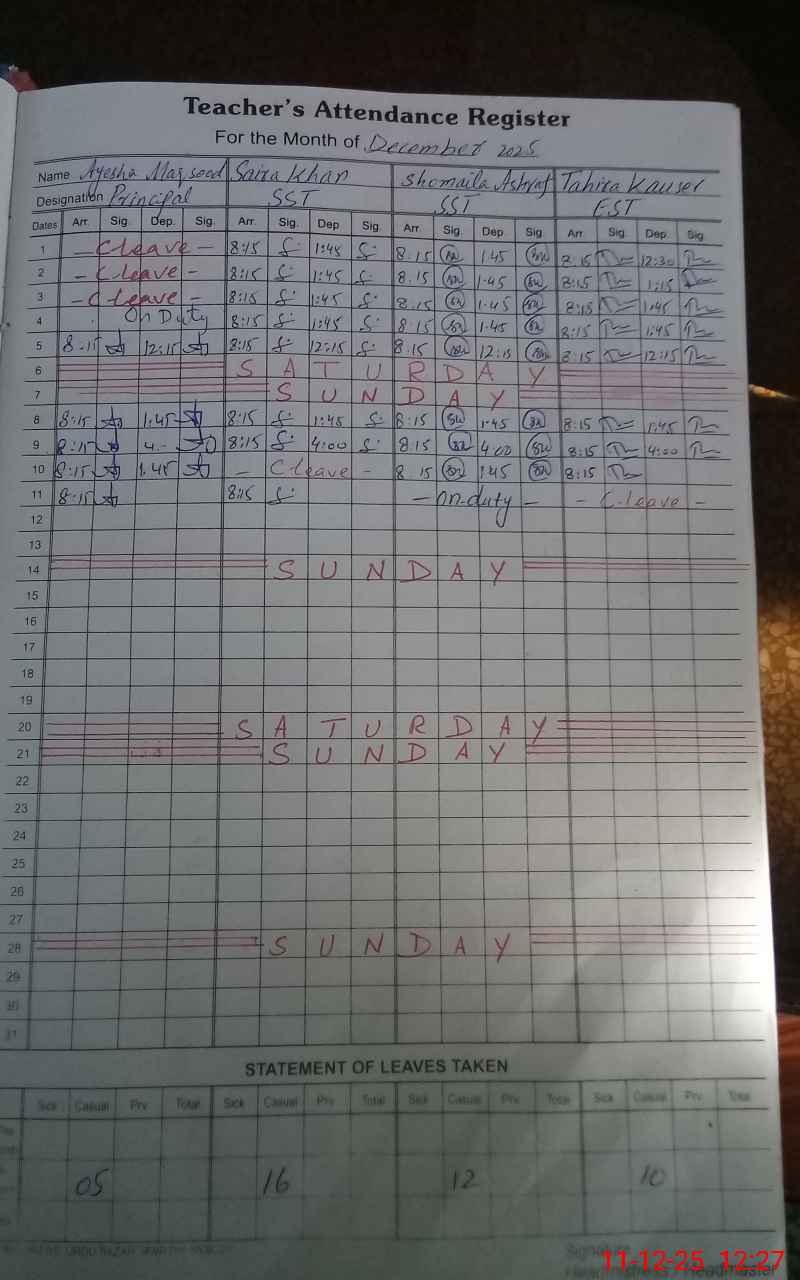 Teacher's Attendance Register
For the Month of December 2025
Name Ayesha Maqsood Saira Khan Shomaila Ashraf Tahira Kauser
Designation Principal SST SST EST
Dates Arr. Sig. Dep. Sig. Arr. Sig. Dep. Sig. Arr. Sig. Dep. Sig. Arr. Sig. Dep. Sig.
1 - C leave - 8:15 1:45 8.15 1.45 8:15 12:30
2 - C leave - 8:15 1:45 8.15 1.45 8:15 1:15
3 - C leave - 8:15 1:45 8.15 1.45 8:15 1:45
4 On Duty 8:15 1:45 8:15 1.45 8:15 1:45
5 8:15 12:15 8:15 12:15 8.15 12:15 8:15 12:15
6 SATURDAY
7 SUNDAY
8 8:15 1:45 8:15 1:45 8:15 1.45 8:15 1:45
9 8:15 4:- 8:15 4:00 8.15 4.00 8:15 4:00
10 8:15 1.45 - C leave - 8.15 1.45 8:15
11 8:15 8:15 - on duty - - C.leave -
12
13
14 SUNDAY
15
16
17
18
19
20 SATURDAY
21 SUNDAY
22
23
24
25
26
27
28 SUNDAY
29
30
31
STATEMENT OF LEAVES TAKEN
Sick Casual Prv. Total Sick Casual Prv. Total Sick Casual Prv. Total Sick Casual Prv. Total
05 16 12 10
Signature
Headmistress / Headmaster
11-12-25 12:27